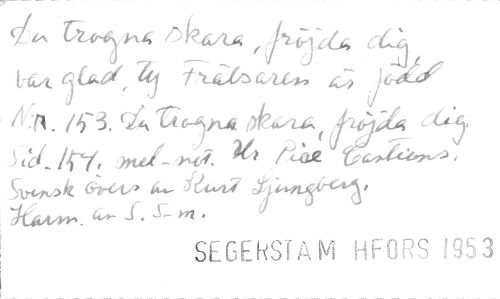 Du trogna skara, fröjda dig,
var glad, ty Frälsaren är född
N:r. 153. Du trogna skara, fröjda dig.
Sid. 154. mel-not. Ur Piae Cantiones.
Svensk övers av Kurt Ljungberg.
Harm. av S. S-m.
SEGERSTAM HFORS 1953